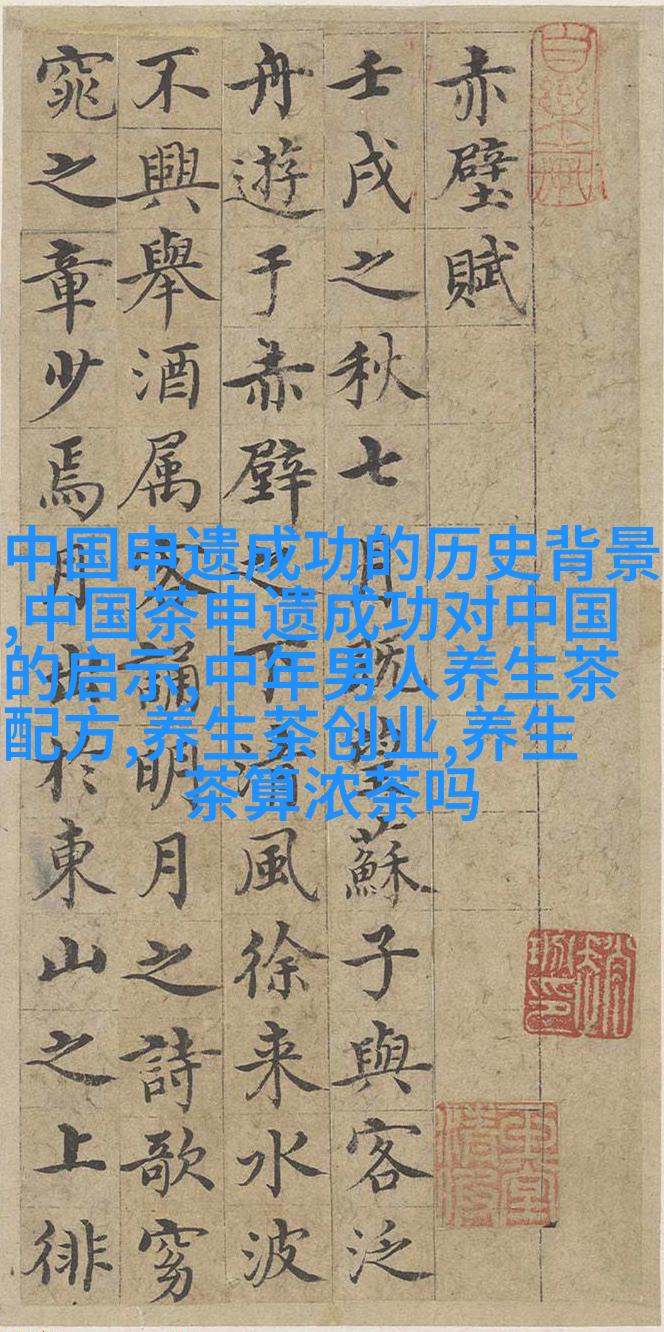 赤壁賦
壬戌之秋七月既望蘇子與客泛
舟遊于赤壁之下清風徐来水波
不興舉酒属客誦明月之詩歌窈
窕之章少焉月出於東山之上徘
中国申遗成功的历史背景
,中国茶申遗成功对中国
的启示,中年男人养生茶
配方,养生茶创业,养生
茶算浓茶吗